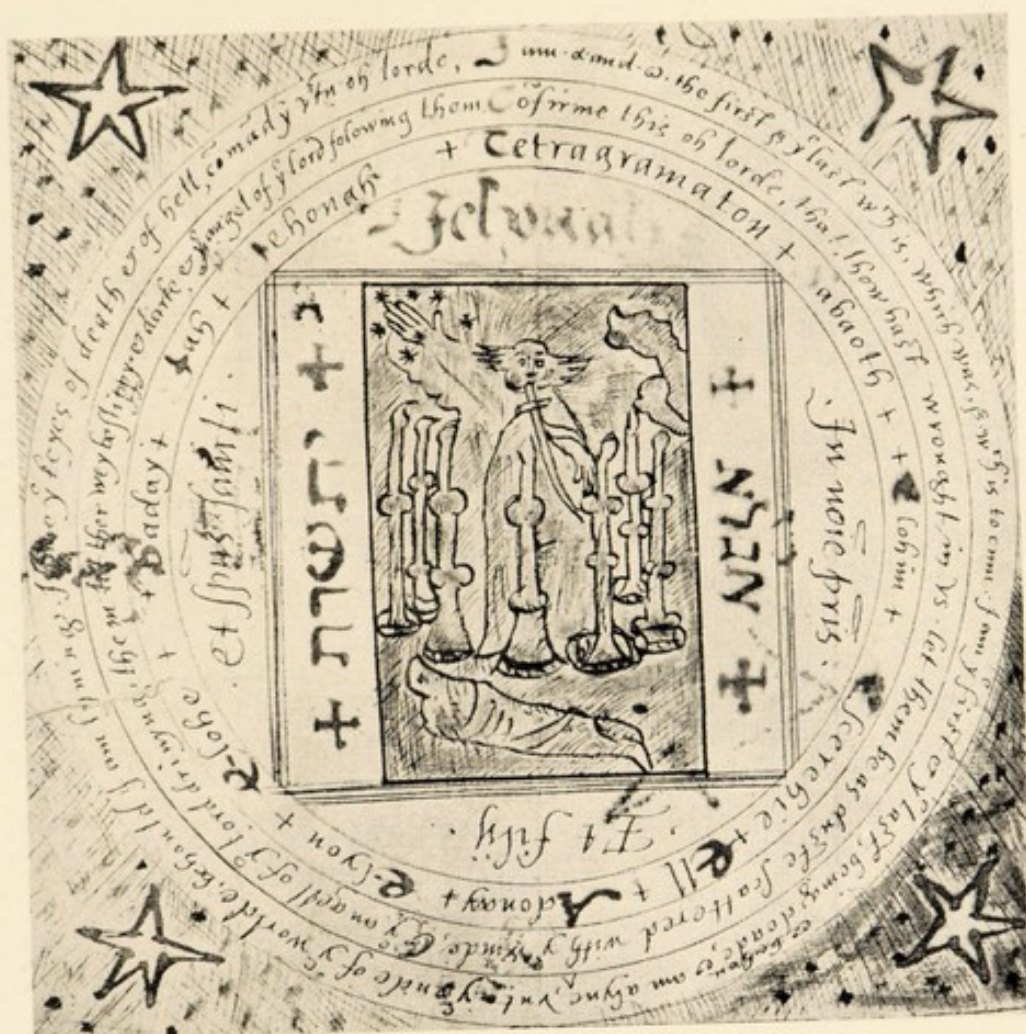 I am α and ω. the first & yͤ last wᶜʰ is, whych was, & wᶜʰ is to come. I am yͤ first & yͤ last, being deade, & behould am alyve, vnto yͤ ende of yͤ worlde, behould I am lyving. & yͤ keyes of death & of hell, oh lorde,
Cõfirme this oh lorde, that thow hast wrowght in vs. let them be as duste scattered with yͤ winde, & yͤ angell of yͤ lord dryvyng them, let ther wey be slippy & dorke, & yͤ angel of yͤ lord folowing them
+ Tetragramaton + abaoth + + lohim + Escerehie + Ell + Adonay + E-lyon + E-lohe + Saday + Iah + Iehonah
Jehouah
In nõie pris.
Et filij.
et spũs sancti.
+ אגלא +
+ יתשרת +